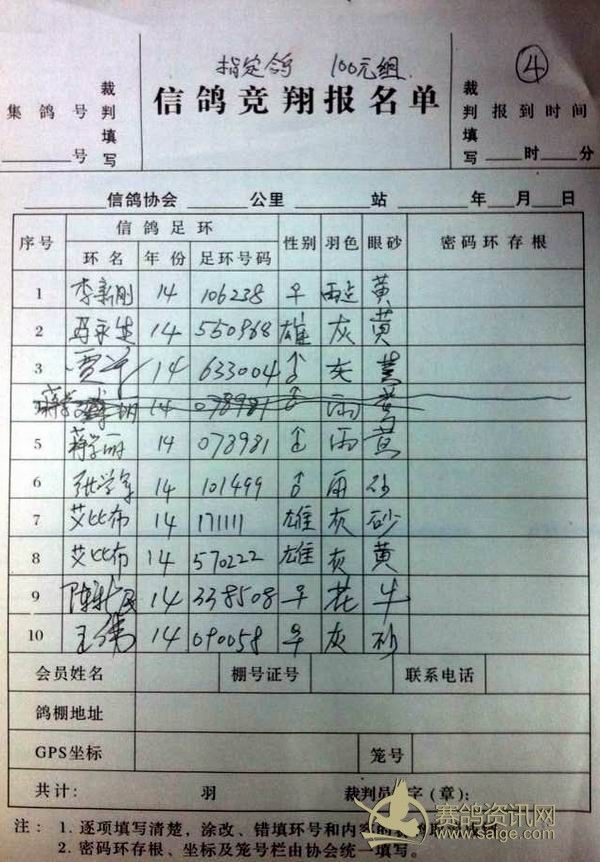 指定鸽 100元组 ④
信鸽竞翔报名单
集鸽号 裁判填写
号
裁判填写 报到时间
时 分
信鸽协会 公里 站 年 月 日
序号 信鸽足环 性别 羽色 眼砂 密码环存根
环名 年份 足环号码
1 李新刚 14 106238 早 雨点 黄
2 马永生 14 550968 雄 灰 黄
3 贾 14 633004 ♂ 灰 黄
14 078981 ♂ 雨 黄
5 蒋学丽 14 078981 ♂ 雨 黄
6 张学军 14 101499 ♂ 雨 砂
7 艾比布 14 171111 雄 灰 砂
8 艾比布 14 570222 雄 灰 黄
9 陈新民 14 338508 早 花 牛
10 王伟 14 090058 早 灰 砂
会员姓名 棚号证号 联系电话
鸽棚地址
GPS坐标 笼号
共计: 羽 裁判员 字(章):
注: 1. 逐项填写清楚,涂改、错填环号和内容的
2. 密码环存根、坐标及笼号栏由协会统一填写。
赛鸽资讯网
www.saige.com